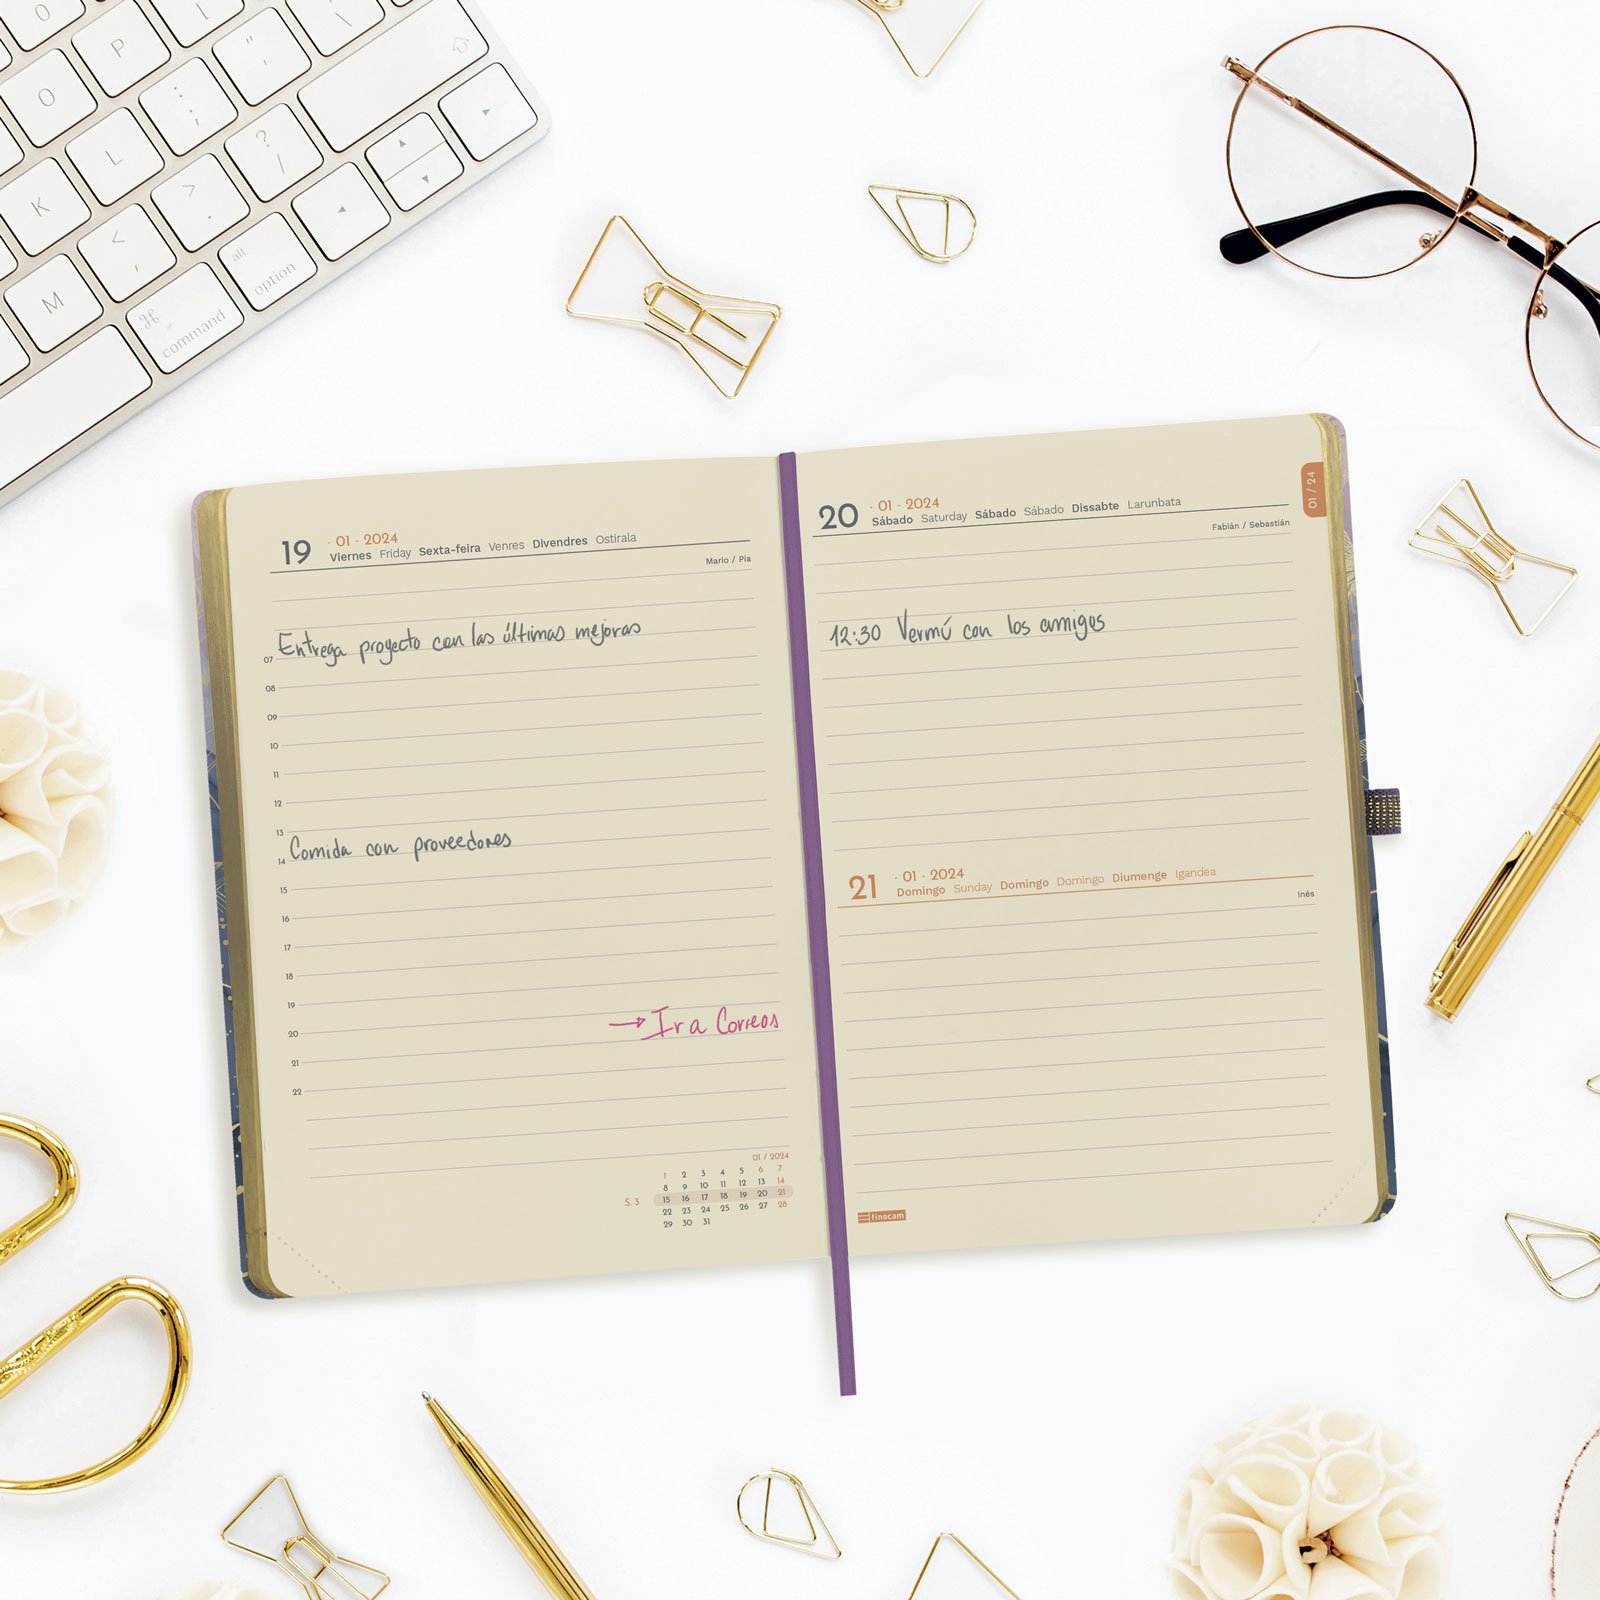 P
O
L
K
M
" '
: ;
? /
> .
< ,
alt
option
⌘
command
19 · 01 · 2024
Viernes Friday Sexta-feira Venres Divendres Ostirala
Mario / Pía
Entrega proyecto con las últimas mejoras
07
08
09
10
11
12
13
Comida con proveedores
14
15
16
17
18
19
→ Ir a Correos
20
21
22
01 / 2024
1 2 3 4 5 6 7
8 9 10 11 12 13 14
S. 3 15 16 17 18 19 20 21
22 23 24 25 26 27 28
29 30 31
01 / 24
20 · 01 · 2024
Sábado Saturday Sábado Sábado Dissabte Larunbata
Fabián / Sebastián
12:30 Vermú con los amigos
21 · 01 · 2024
Domingo Sunday Domingo Domingo Diumenge Igandea
Inés
finocam